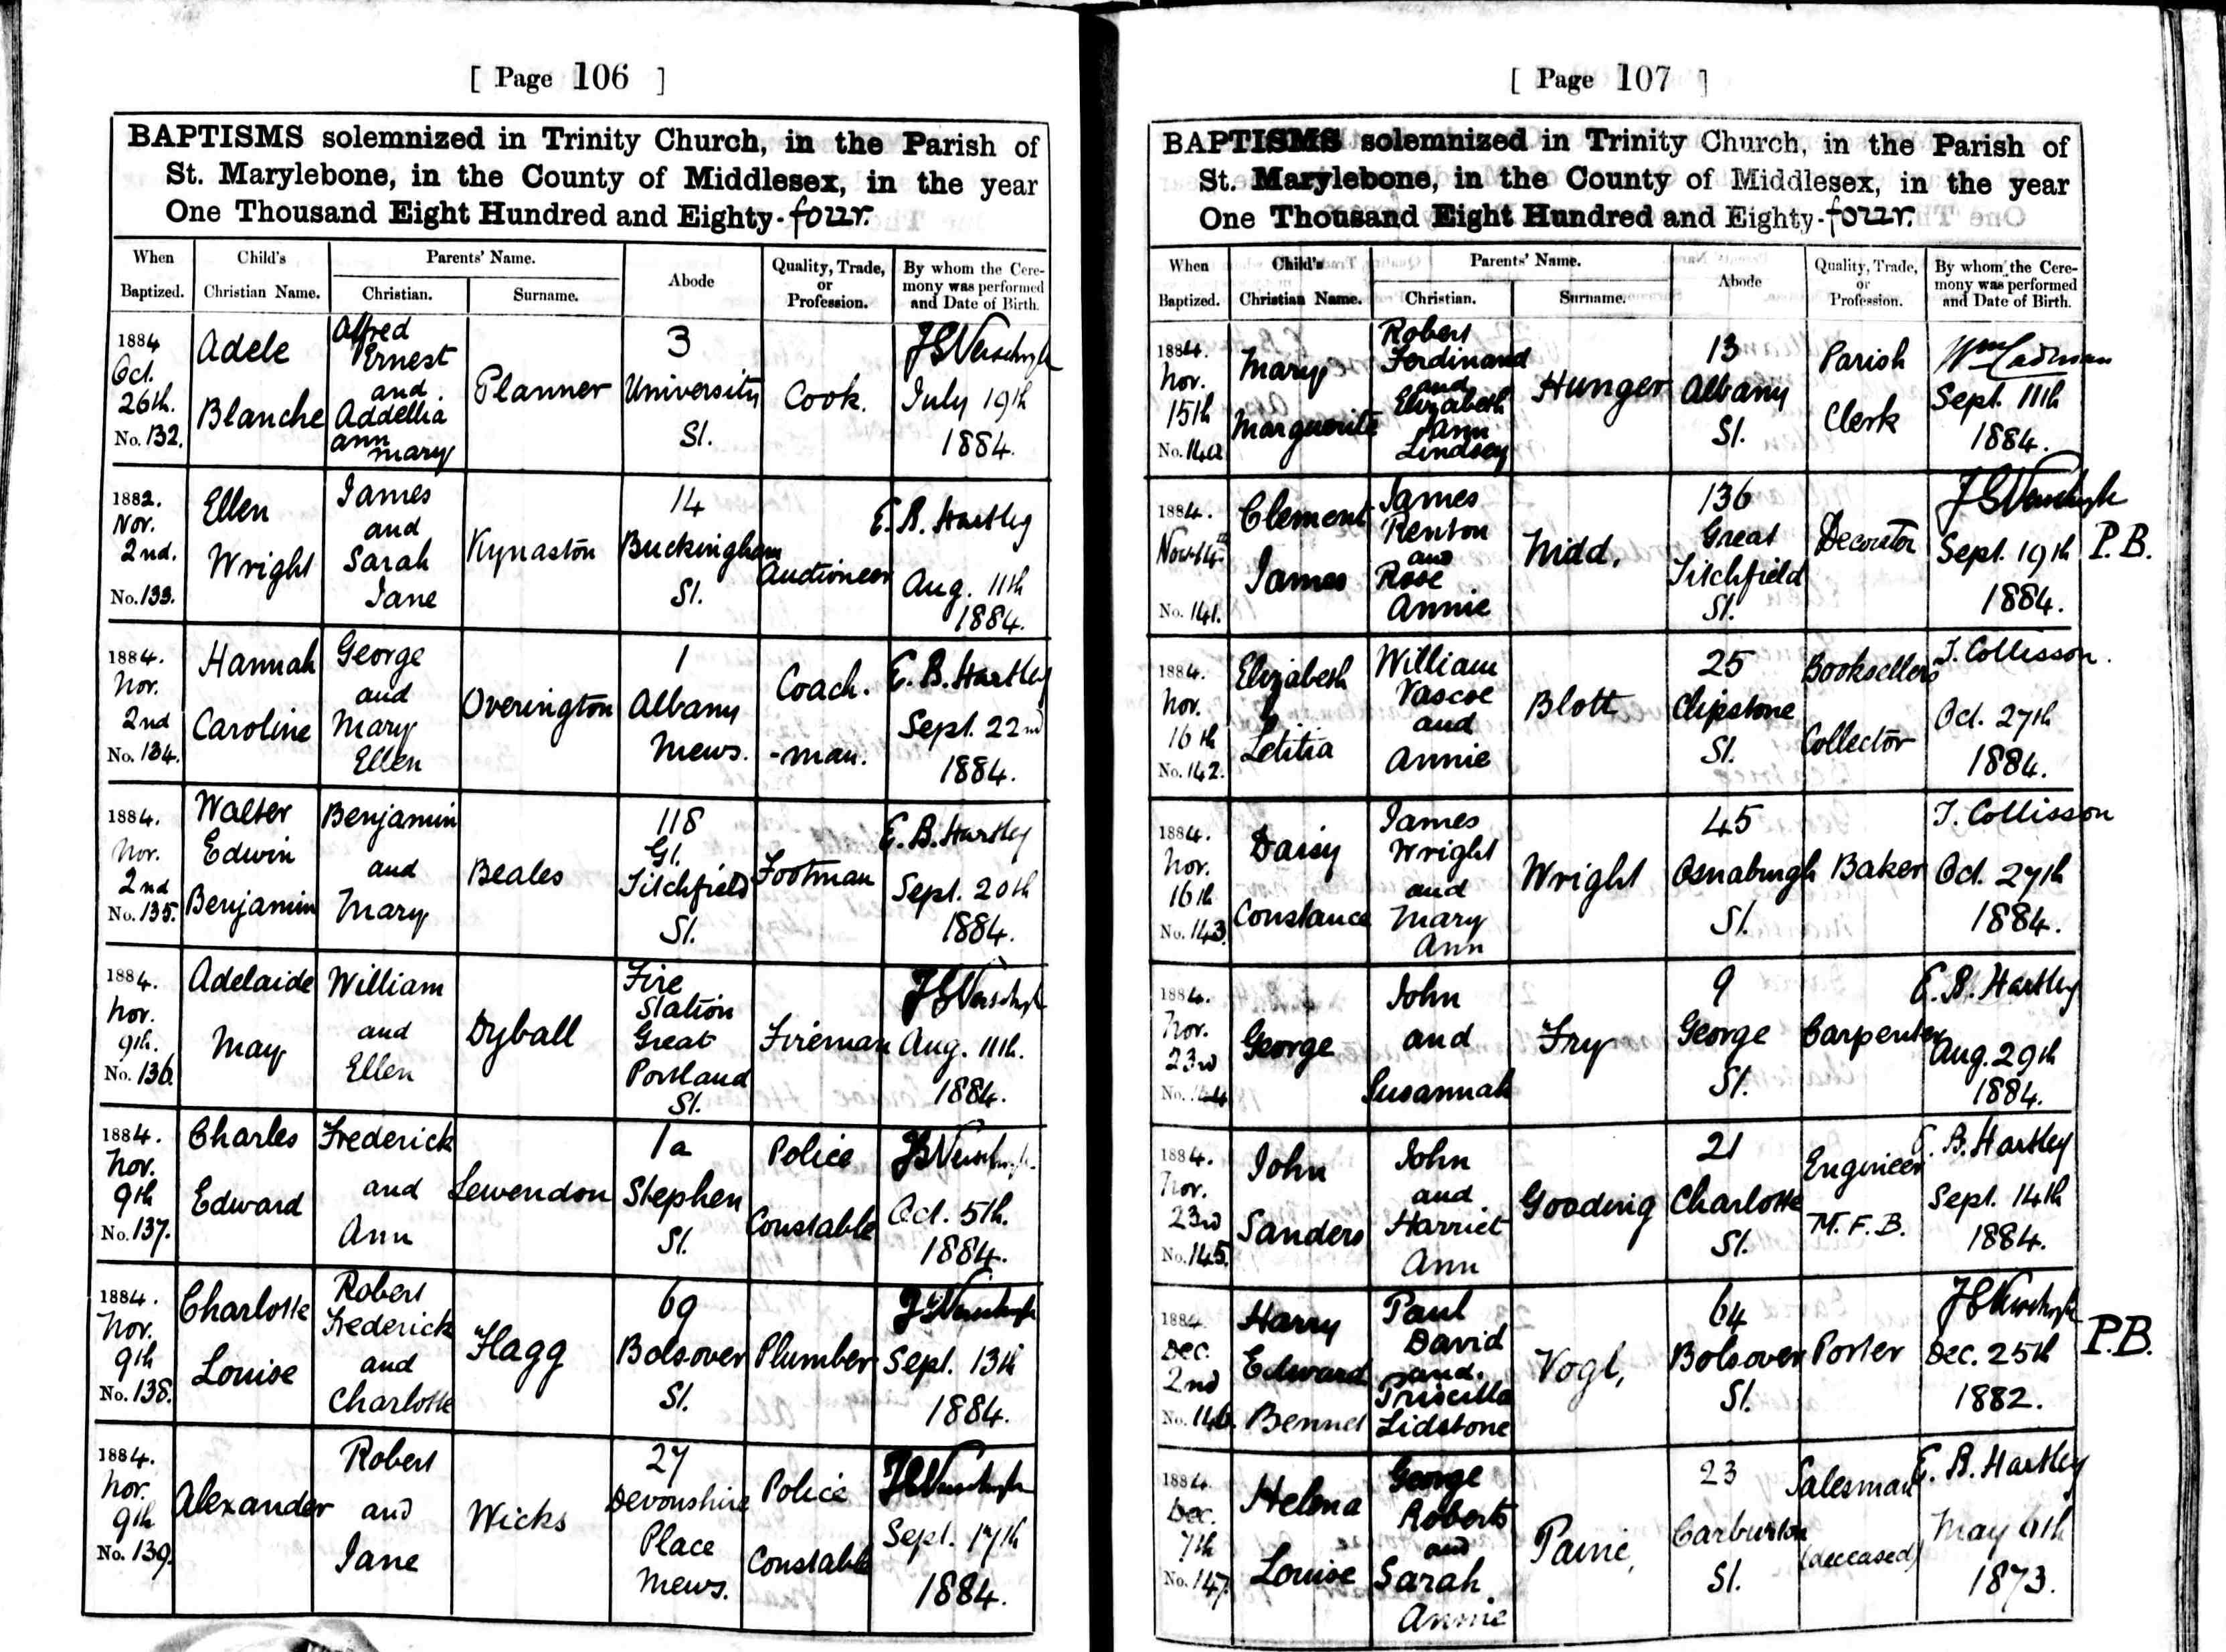 [ Page 106 ]
BAPTISMS solemnized in Trinity Church, in the Parish of
St. Marylebone, in the County of Middlesex, in the year
One Thousand Eight Hundred and Eighty-four.
When Baptized.
Child's Christian Name.
Parents' Name.
Christian.
Surname.
Abode
Quality, Trade, or Profession.
By whom the Ceremony was performed and Date of Birth.
1884 Oct. 26th. No. 132.
Adele Blanche
Alfred Ernest and Addellia Ann Mary
Planner
3 University St.
Cook.
July 19th 1884.
1882. Nov. 2nd. No. 133.
Ellen Wright
James and Sarah Jane
Kynaston
14 Buckingham St.
Auctioneer
E. B. Hartley Aug. 11th 1884.
1884. Nov. 2nd No. 134.
Hannah Caroline
George and Mary Ellen
Overington
1 Albany Mews.
Coach-man.
E. B. Hartley Sept. 22nd 1884.
1884. Nov. 2nd No. 135.
Walter Edwin Benjamin
Benjamin and Mary
Beales
118 Gt. Titchfield St.
Footman
E. B. Hartley Sept. 20th 1884.
1884. Nov. 9th. No. 136.
Adelaide May
William and Ellen
Dyball
Fire Station Great Portland St.
Fireman
Aug. 11th. 1884.
1884. Nov. 9th No. 137.
Charles Edward
Frederick and Ann
Lewendon
1a Stephen St.
Police Constable
Oct. 5th. 1884.
1884. Nov. 9th No. 138.
Charlotte Louise
Robert Frederick and Charlotte
Flagg
69 Bolsover St.
Plumber
Sept. 13th 1884.
1884. Nov. 9th No. 139.
Alexander
Robert and Jane
Wicks
27 Devonshire Place Mews.
Police Constable
Sept. 17th 1884.
[ Page 107 ]
BAPTISMS solemnized in Trinity Church, in the Parish of
St. Marylebone, in the County of Middlesex, in the year
One Thousand Eight Hundred and Eighty-four.
When Baptized.
Child's Christian Name.
Parents' Name.
Christian.
Surname.
Abode
Quality, Trade, or Profession.
By whom the Ceremony was performed and Date of Birth.
1884. Nov. 15th No. 140
Mary Marguerite
Robert Ferdinand and Elizabeth Ann Lindsey
Hunger
13 Albany St.
Parish Clerk
Wm Cadman Sept. 11th 1884.
1884. Nov. 14th No. 141.
Clement James
James Renton and Rose Annie
Nidd.
136 Great Titchfield St.
Decorator
Sept. 19th 1884.
P.B.
1884. Nov. 16th No. 142.
Elizabeth Letitia
William Vascoe and Annie
Blott
25 Clipstone St.
Booksellers Collector
T. Collisson. Oct. 27th 1884.
1884. Nov. 16th No. 143.
Daisy Constance
James Wright and Mary Ann
Wright
45 Osnaburgh St.
Baker
T. Collisson Oct. 27th 1884.
1884. Nov. 23rd No. 144
George
John and Susannah
Fry
9 George St.
Carpenter
E. B. Hartley Aug. 29th 1884.
1884. Nov. 23rd No. 145.
John Sanders
John and Harriet Ann
Gooding
21 Charlotte St.
Engineer M.F.B.
E. B. Hartley Sept. 14th 1884.
1884 Dec. 2nd No. 146.
Harry Edward Bennet
Paul David and. Priscilla Lidstone
Vogl,
64 Bolsover St.
Porter
Dec. 25th 1882.
P.B.
1884. Dec. 7th No. 147.
Helena Louise
George Roberts and Sarah Annie
Paine,
23 Carburton St.
Salesman (deceased)
E. B. Hartley May 1873.